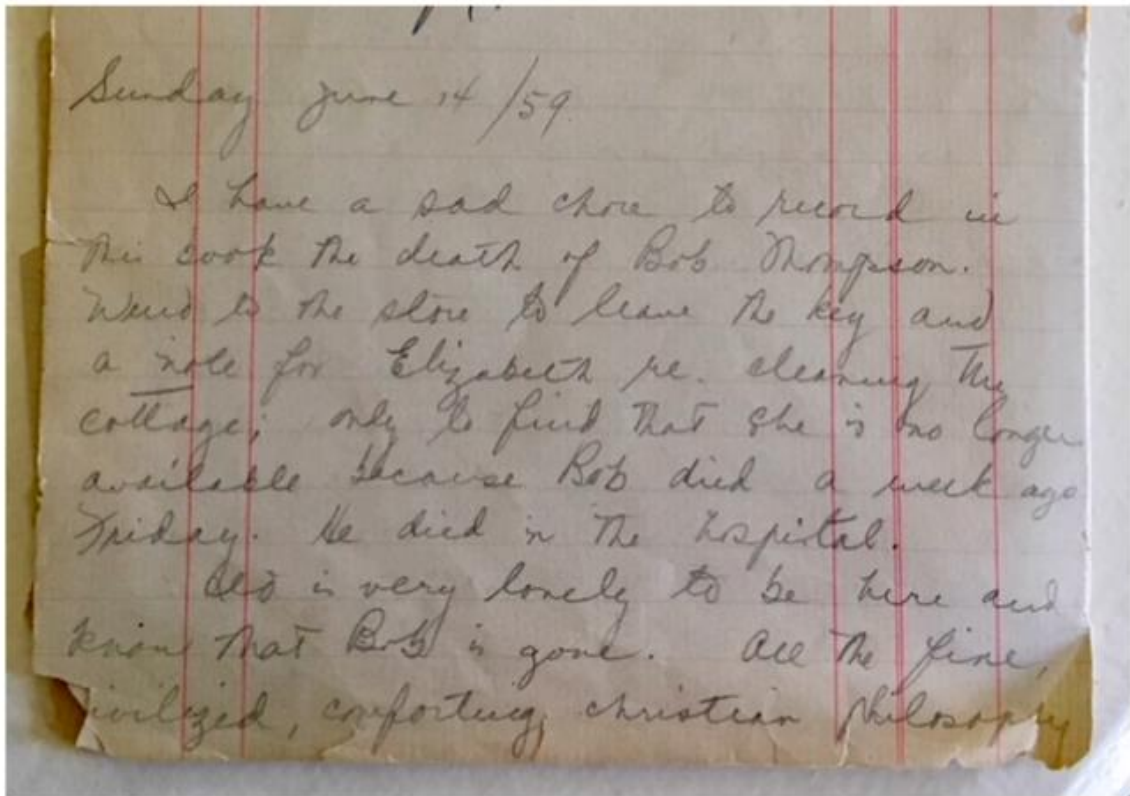 Sunday June 14/59
I have a sad chore to record in
this book the death of Bob Thompson.
Went to the store to leave the key and
a note for Elizabeth re. cleaning the
cottage; only to find that she is no longer
available because Bob died a week ago
Friday. He died in the hospital.
is very lonely to be here and
know that Bob is gone. All the fine,
civilized, comforting, christian philosophy